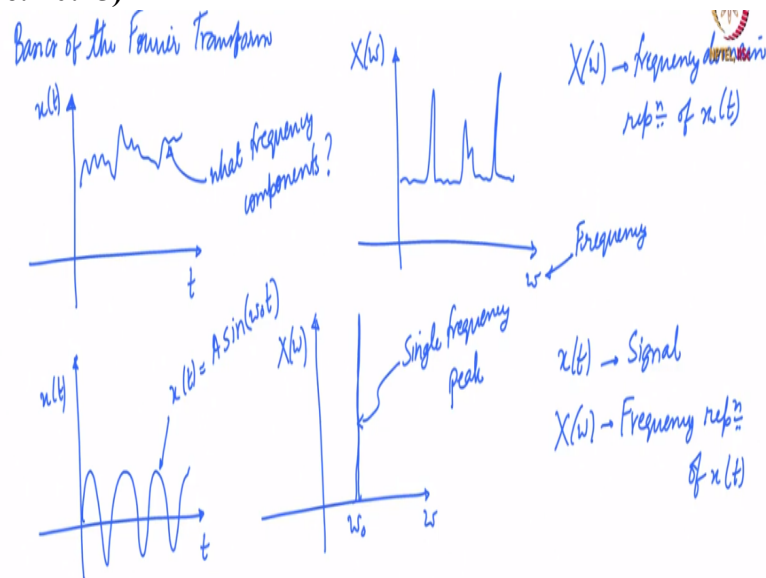 Basics of the Fourier Transform
x(t)
t
what frequency
components?
X(ω)
ω
Frequency
X(ω) → frequency domain
repⁿ of x(t)
x(t)
t
x(t) = A sin(ω₀t)
X(ω)
ω₀
ω
Single frequency
peak
x(t) → Signal
X(ω) → Frequency repⁿ
of x(t)